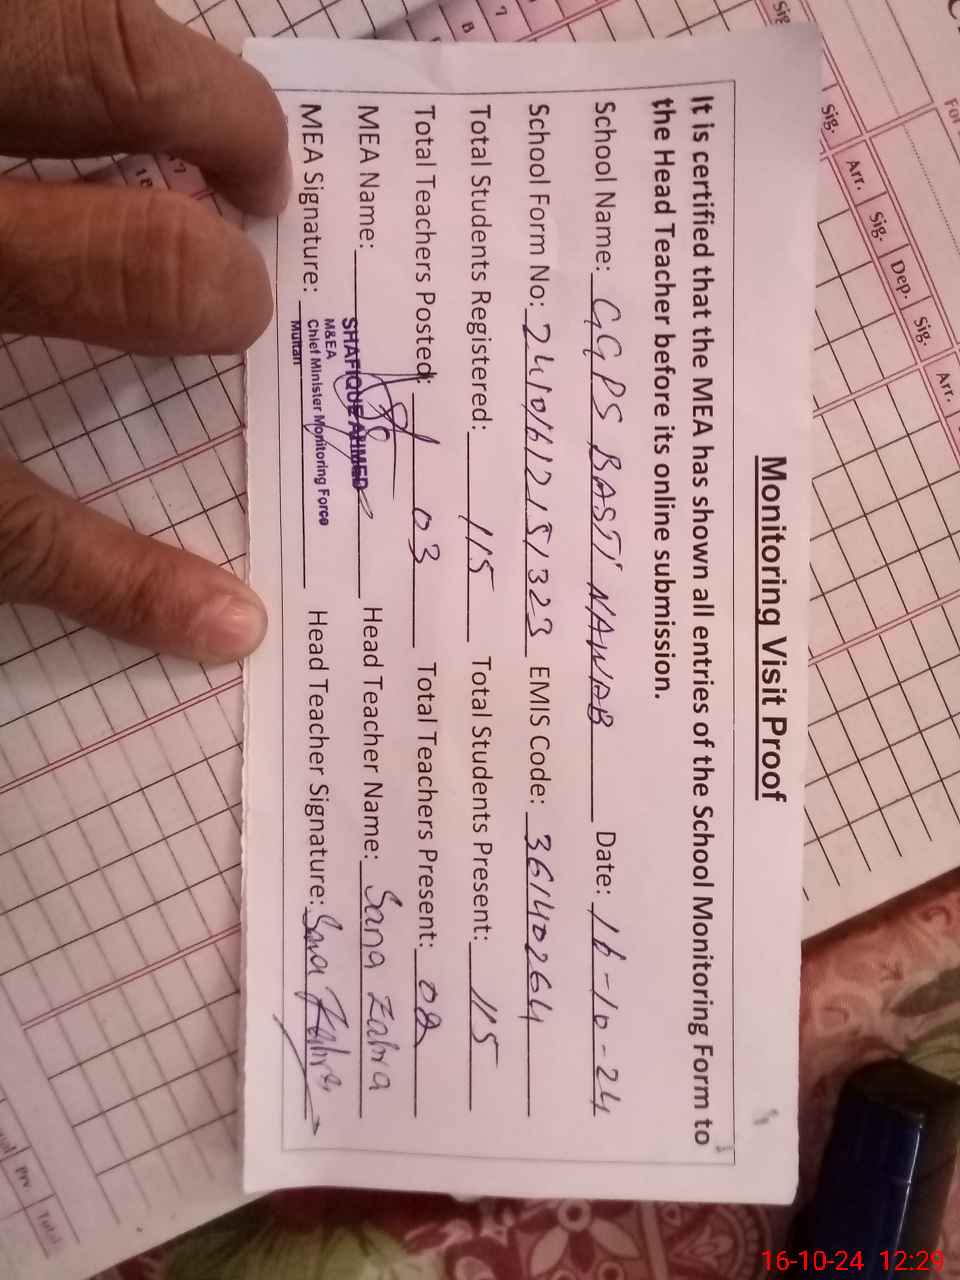 Monitoring Visit Proof
It is certified that the MEA has shown all entries of the School Monitoring Form to
the Head Teacher before its online submission.
School Name: GGPS BASTI NAWAB Date: 16-10-24
School Form No: 24101612151323 EMIS Code: 36140264
Total Students Registered: 115 Total Students Present: 115
Total Teachers Posted: 03 Total Teachers Present: 02
MEA Name: SHAFIQUE AHMED Head Teacher Name: Sana Zahra
M&EA
Chief Minister Monitoring Force
Multan
MEA Signature: Head Teacher Signature: Sana Zahra
Sig. Arr. Sig. Dep. Sig. Arr.
For
Prv Total
16-10-24 12:29